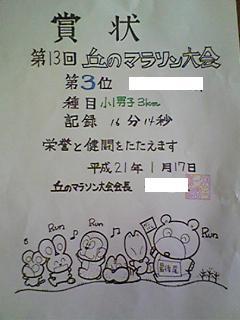 賞状
第13回 丘のマラソン大会
第3位
種目 小1男子3km
記録 16分14秒
栄誉と健闘をたたえます
平成21年1月17日
丘のマラソン大会会長
Run
Run
Run
Run
最後尾